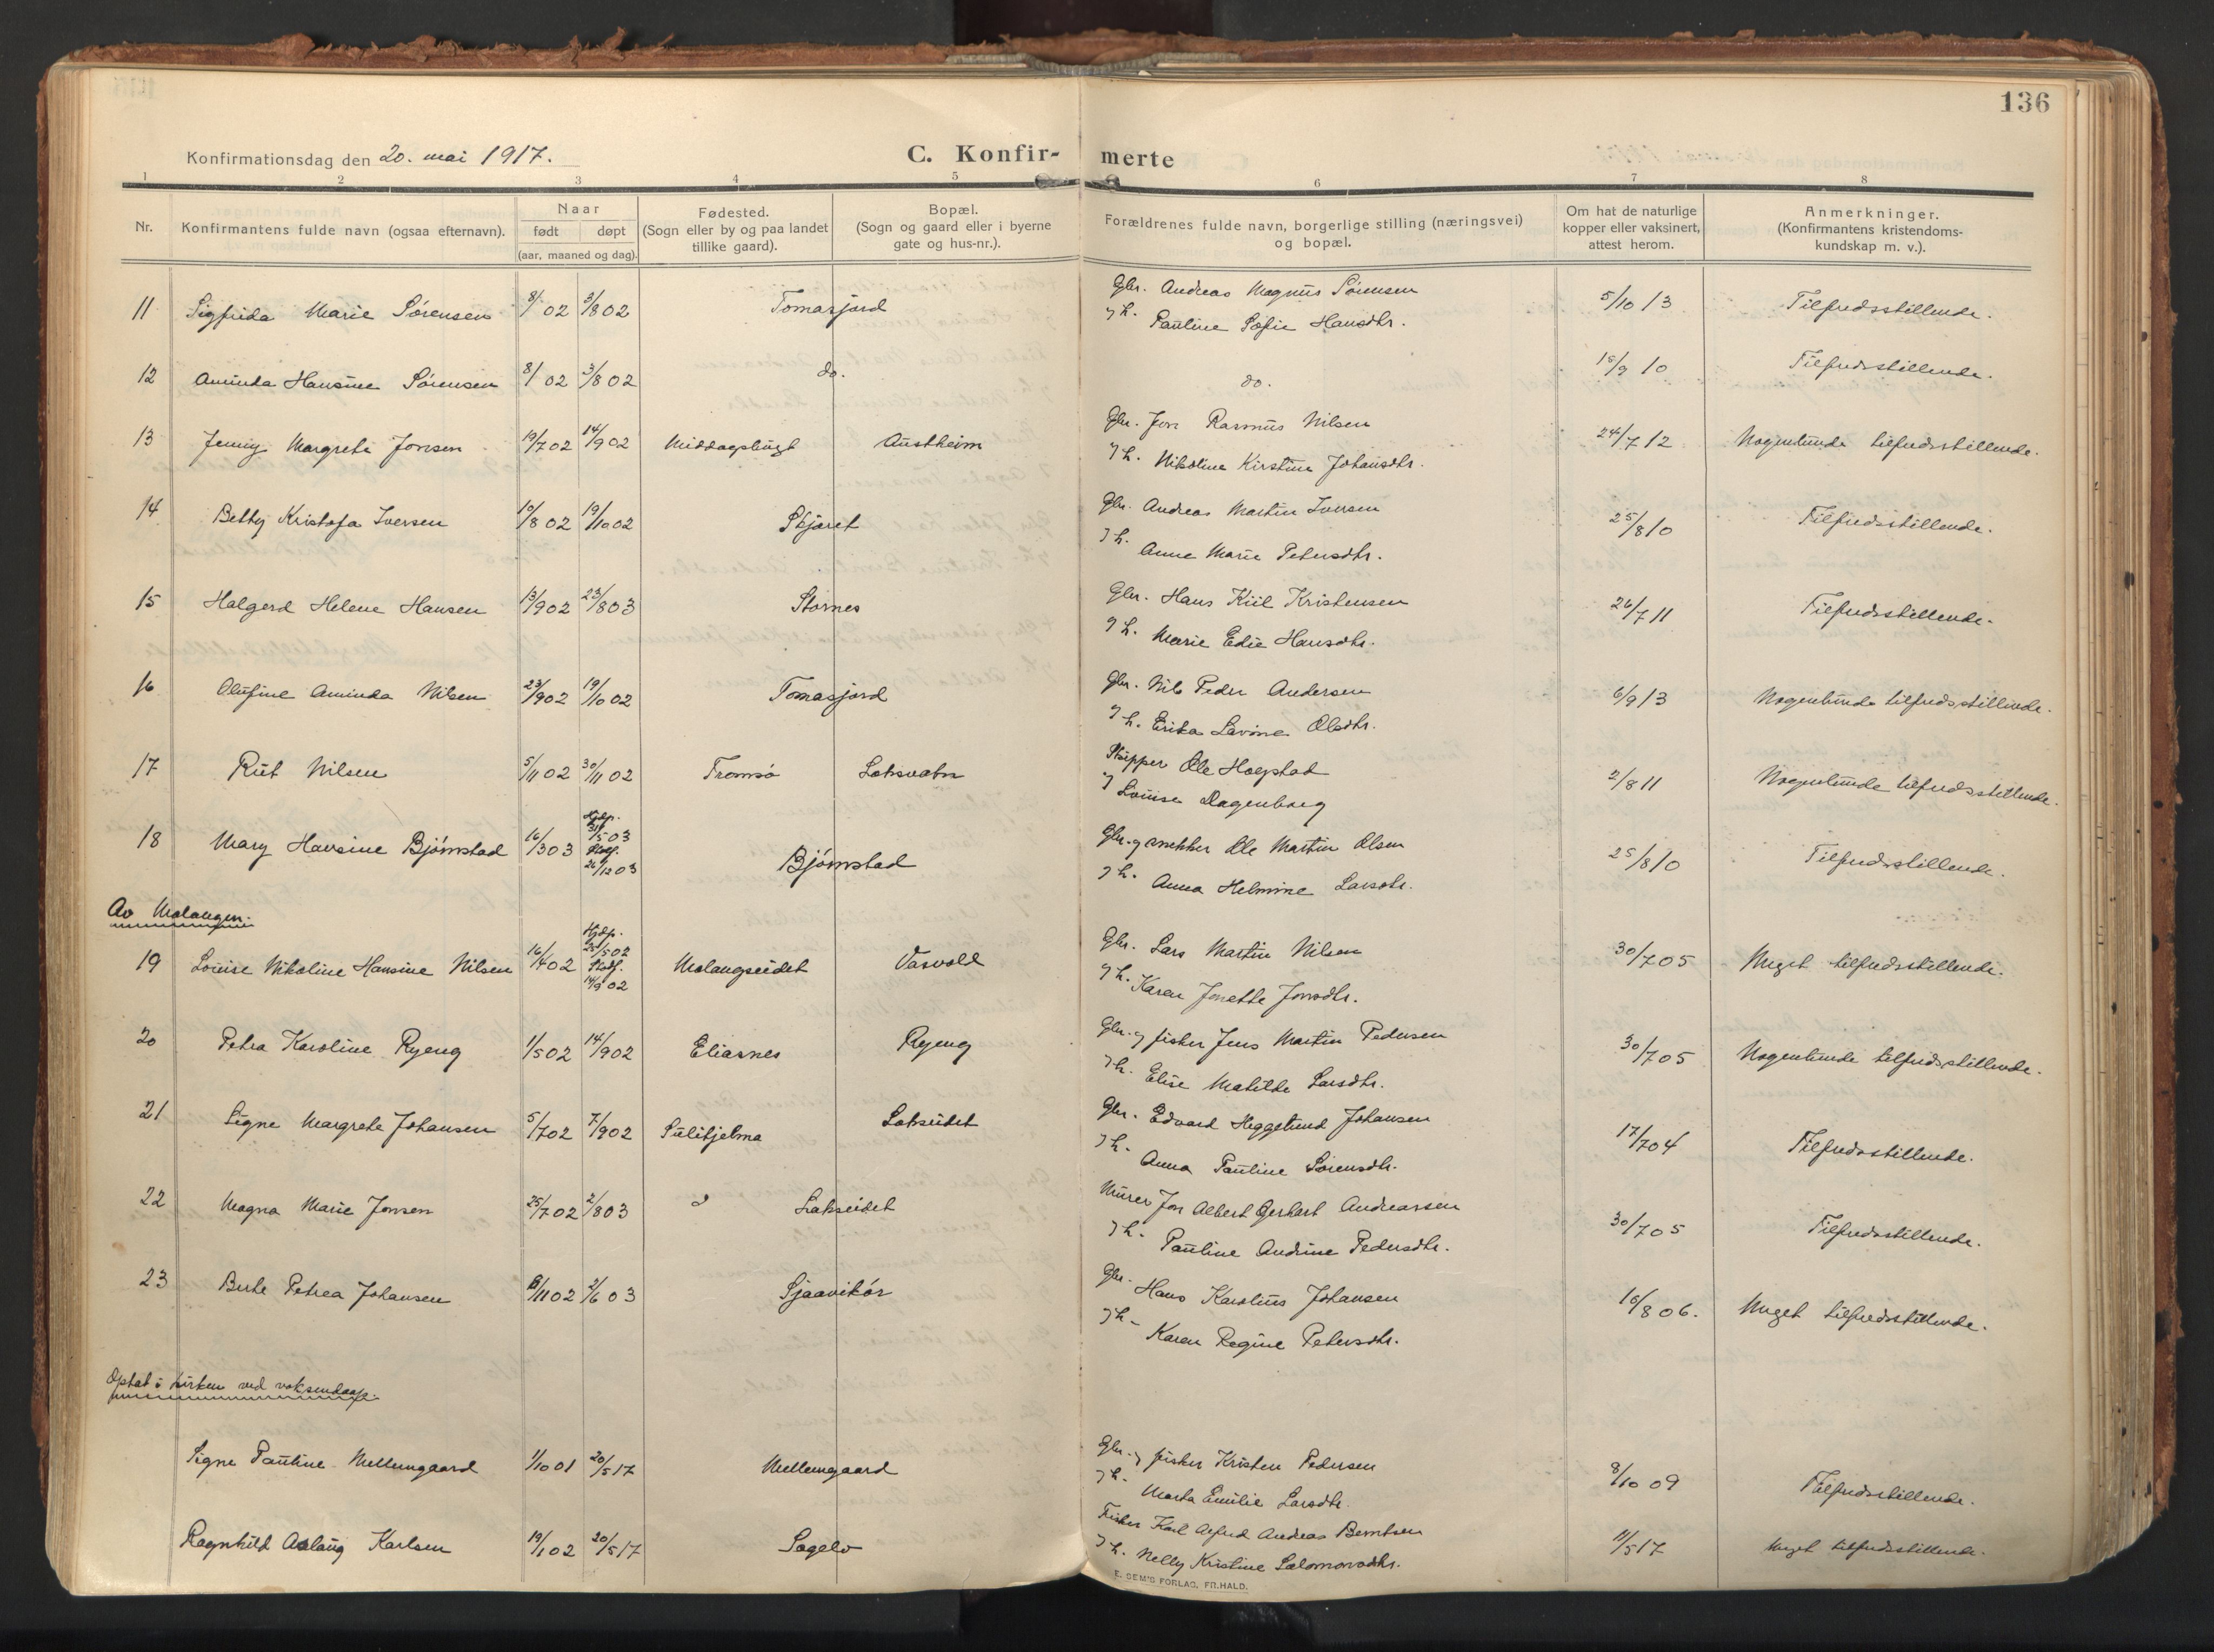 136
Konfirmationsdag den 20. mai 1917.
C. Konfir- merte
1 2 3 4 5 6 7 8
Nr.
Konfirmantens fulde navn (ogsaa efternavn).
Naar
født døpt
(aar, maaned og dag).
Fødested.
(Sogn eller by og paa landet
tillike gaard).
Bopæl.
(Sogn og gaard eller i byerne
gate og hus-nr.).
Forældrenes fulde navn, borgerlige stilling (næringsvei)
og bopæl.
Om hat de naturlige
kopper eller vaksinert,
attest herom.
Anmerkninger.
(Konfirmantens kristendoms-
kundskap m. v.).
11 Sigfrida Marie Sørensen 8/1 02 3/8 02 Tomasjord Gbr. Andreas Magnus Sørensen 5/10 13 Tilfredsstillende.
og h. Pauline Sofie Hansdtr.
12 Aminda Hansine Sørensen 8/1 02 3/8 02 do. do. 15/9 10 Tilfredsstillende.
13 Jenny Margrete Jonsen 19/7 02 14/9 02 Middagsbugt Austheim Gbr. Jon Rasmus Nilsen 24/7 12 Nogenlunde tilfredsstillende.
og h. Nikoline Kirstine Johansdtr.
14 Betty Kristofa Iversen 10/8 02 19/10 02 Skjaret Gbr. Andreas Martin Iversen 25/8 10 Tilfredsstillende.
og h. Anne Marie Petersdtr.
15 Halgerd Helene Hansen 13/9 02 23/8 03 Stornes Gbr. Hans Kiil Kristensen 26/7 11 Tilfredsstillende.
og h. Marie Edie Hansdtr.
16 Olufine Aminda Nilsen 23/9 02 19/10 02 Tomasjord Gbr. Nils Peder Andersen 6/9 13 Nogenlunde tilfredsstillende.
og h. Erika Lavine Olsdtr.
17 Rut Nilsen 5/11 02 30/11 02 Tromsø Laksvatn Skipper Ole Hogstad 2/8 11 Nogenlunde tilfredsstillende.
og Louise Dagenborg
18 Mary Hansine Bjørnstad 16/3 03 Hjdp. 31/5 03 Stadf. 26/12 03 Bjørnstad Gbr. og snekker Ole Martin Olsen 25/8 10 Tilfredsstillende.
og h. Anna Helmine Larsdtr.
Av Malangen.
19 Louise Nikoline Hansine Nilsen 16/4 02 Hjdp. 25/5 02 Stadf. 14/9 02 Malangseidet Vasvold Gbr. Lars Martin Nilsen 30/7 05 Meget tilfredsstillende.
og h. Karen Jonette Jonsdtr.
20 Petra Karoline Ryeng 1/5 02 14/9 02 Eliasnes Ryeng Gbr. og fisker Jens Martin Pedersen 30/7 05 Nogenlunde tilfredsstillende.
og h. Elise Matilde Larsdtr.
21 Signe Margrete Johansen 5/7 02 7/9 02 Sulitjelma Lakseidet Gbr. Edvard Heggelund Johansen 17/7 04 Tilfredsstillende.
og h. Anna Pauline Sørensdtr.
22 Magna Marie Jonsen 25/7 02 2/8 03 Lakseidet Murer Jon Albert Gerhart Andreassen 30/7 05 Tilfredsstillende.
og h. Pauline Andrine Pedersdtr.
23 Berte Petrea Johansen 6/11 02 2/6 03 Sjaavikør Gbr. Hans Karolius Johansen 16/8 06. Meget tilfredsstillende.
og h. Karen Regine Petersdtr.
Optat i kirken ved voksendaap.
Signe Pauline Mellemgaard 1/10 01 20/5 17 Mellemgaard Gbr. og fisker Kristen Pedersen 8/10 09 Tilfredsstillende.
og h. Marta Emilie Larsdtr.
Ragnhild Aslaug Karlsen 19/1 02 20/5 17 Sagelv Fisker Karl Alfred Andreas Berntsen 11/5 17 Meget tilfredsstillende.
og h. Nelly Kristine Salomonsdtr.
E. SEM'S FORLAG, FR.HALD.